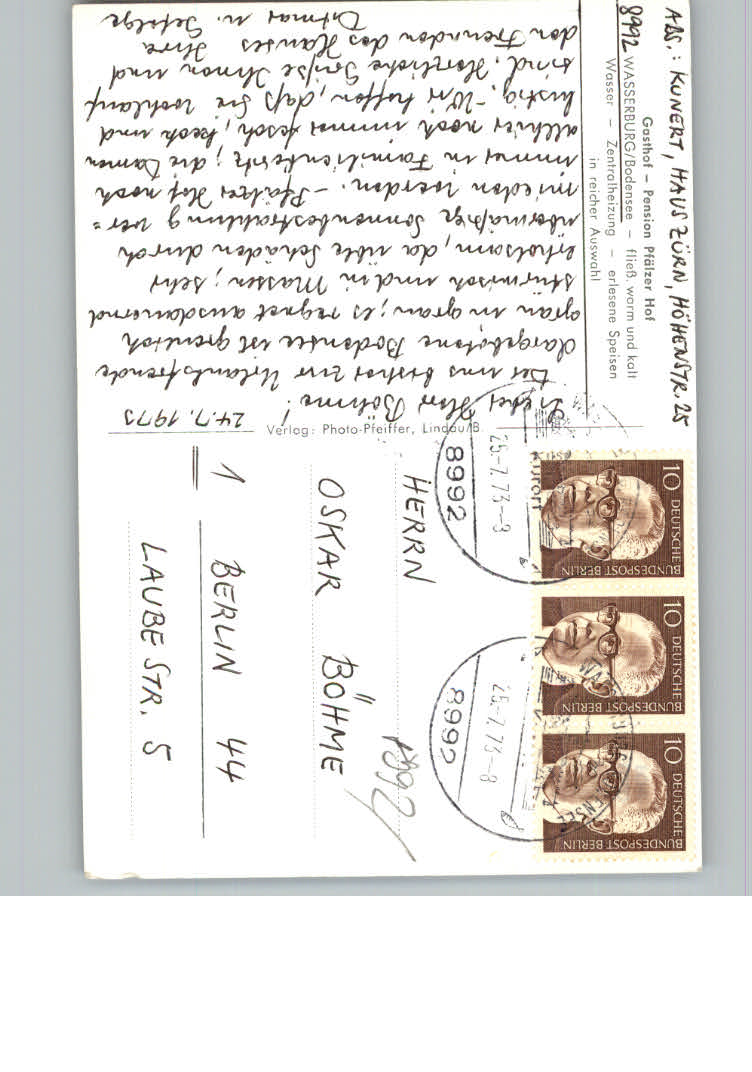 ABS.: KUNERT, HAUS ZÜRN, HÖHENSTR. 25
Gasthof – Pension Pfälzer Hof
8992 WASSERBURG/Bodensee – fließ. warm und kalt
Wasser – Zentralheizung – erlesene Speisen
in reicher Auswahl
24.7.1973
Lieber Herr Böhme!
Der uns bisher zur Urlaubsfreude
dargebotene Bodensee ist grenzlich
grau in grau; es regnet ausdauernd
stürmisch und in Massen; sehr
erholsam, da üble Schäden durch
übermäßige Sonnenbestrahlung ver=
mieden werden. – Pfälzer Hof noch
immer in Familienbesitz; die Damen
allhier noch immer fesch, keck und
lustig. – Wir hoffen, daß Sie wohlauf
sind. Herzliche Grüße Ihnen und
den Freunden des Hauses
Ihre
Ditmar u. Gefolge
Verlag: Photo-Pfeiffer, Lindau/B.
HERRN
OSKAR BÖHME
1 BERLIN 44
LAUBESTR. 5
10 DEUTSCHE BUNDESPOST BERLIN
10 DEUTSCHE BUNDESPOST BERLIN
10 DEUTSCHE BUNDESPOST BERLIN
8992
25-7.73-8
8992
25-7.73-8